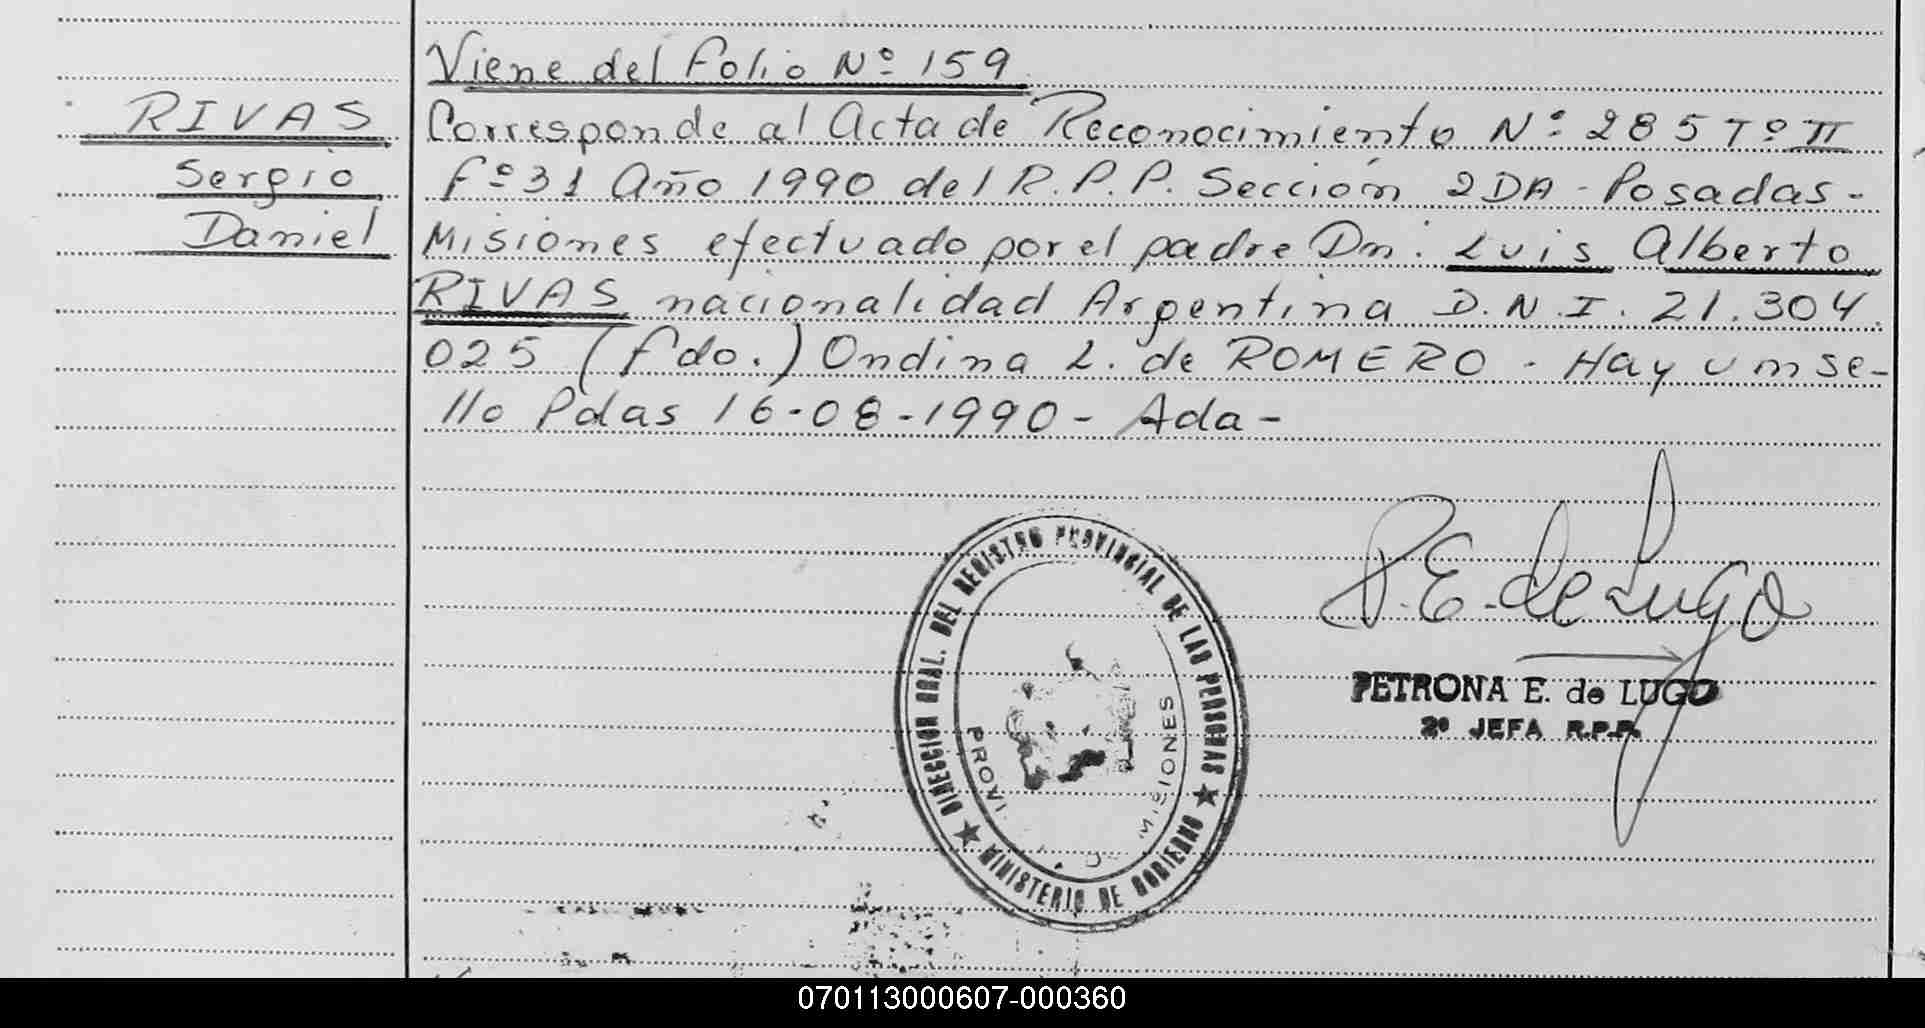 Viene del Folio Nº 159
RIVAS
Sergio
Daniel
Corresponde al Acta de Reconocimiento Nº 285 Tº II
Fº 31 Año 1990 del R.P.P. Sección 2DA - Posadas -
Misiones efectuado por el padre Dn. Luis Alberto
RIVAS nacionalidad Argentina D.N.I. 21.304.
025 (fdo.) Ondina L. de ROMERO - Hay un se-
llo Pdas 16-08-1990 - Ada -
P.E. de Lugo
PETRONA E. de LUGO
2º JEFA R.P.P.
DIRECCION GRAL. DEL REGISTRO PROVINCIAL DE LAS PERSONAS
MINISTERIO DE GOBIERNO
PROVI
MISIONES
070113000607-000360